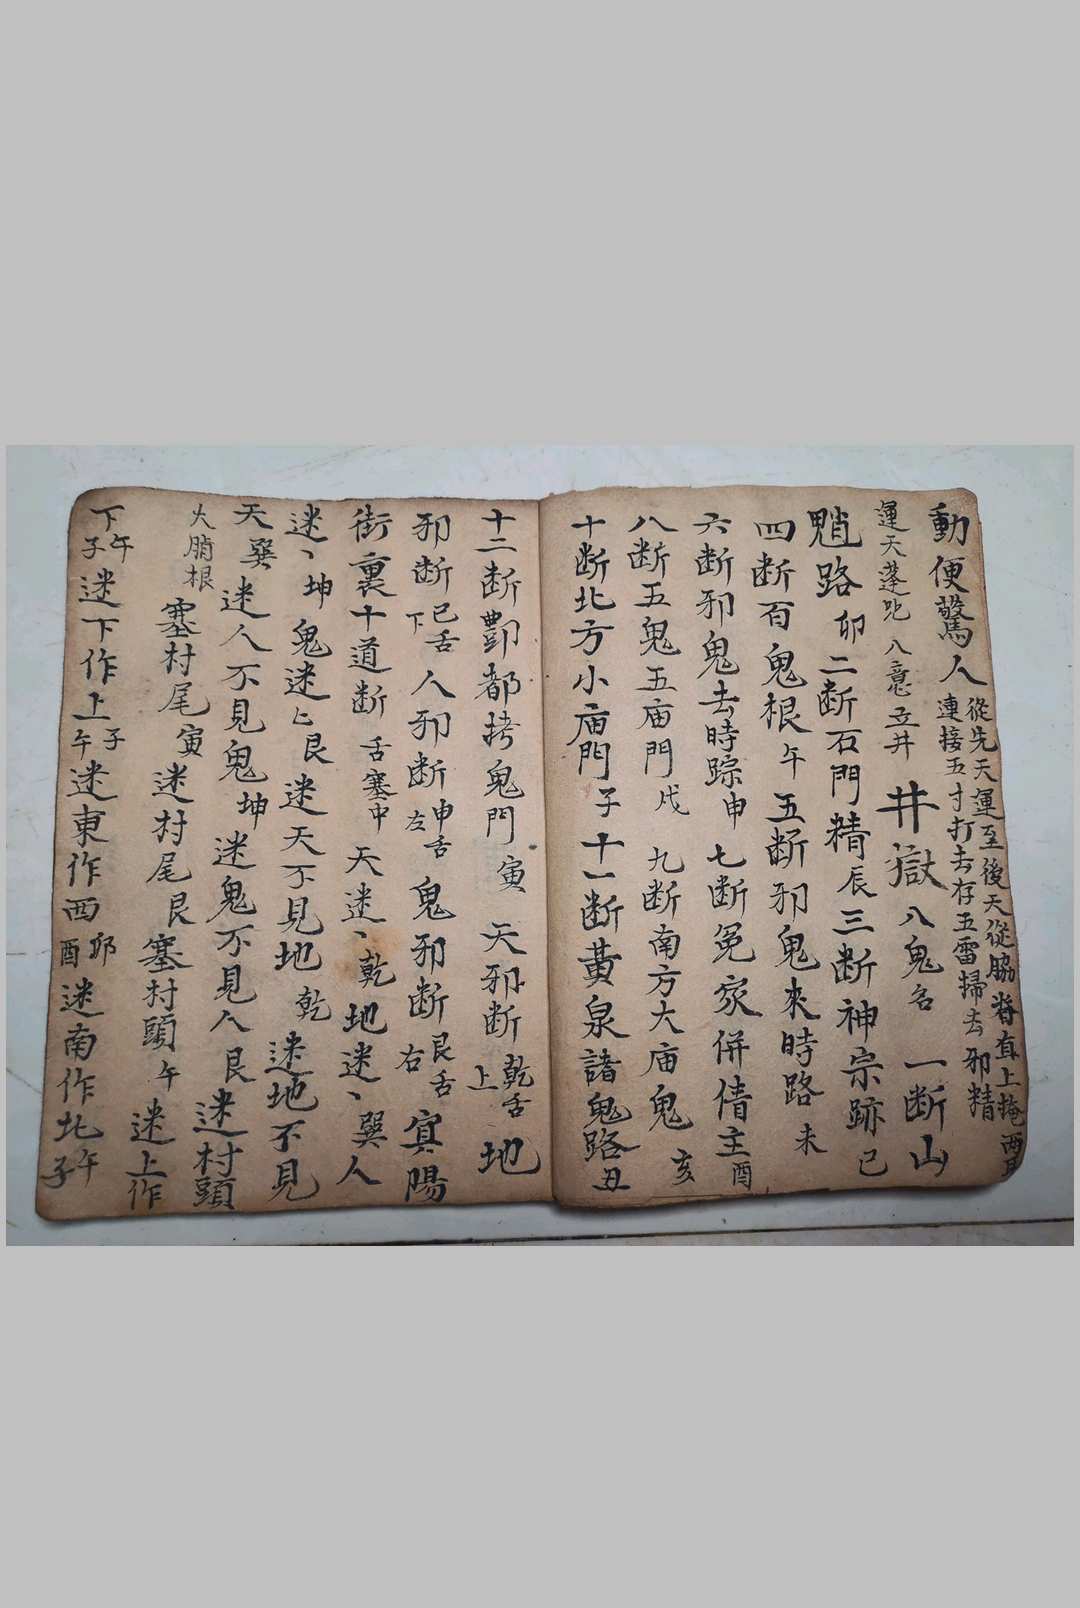 動便驚人 從先天運至後天從脇脊直上掩兩目
連接五寸打去存五雷掃去邪精
運天蓬咒 八意立井 井獄 八鬼名 一断山
魈路 卯 二断石門精 辰 三断神宗跡 已
四断百鬼根 午 五断邪鬼來時路 未
六断邪鬼去時踪 申 七断冤家併債主 酉
八断五鬼五庙門 戌 九断南方大庙鬼 亥
十断北方小庙門 子 十一断黃泉諸鬼路 丑
十二断酆都拷鬼門 寅 天邪断 乾舌上 地
邪断 巳舌下 人邪断 申舌左 鬼邪断 艮舌右 寅陽
街裏十道断 舌塞中 天迷、乾 地迷、巽 人
迷、坤 鬼迷、艮 迷天不見地 乾 迷地不見
天 巽 迷人不見鬼 坤 迷鬼不見人 艮 迷村頭
大腸根 塞村尾 寅 迷村尾 艮 塞村頭 午 迷上作
下 午子 迷下作上 子午 迷東作西 卯酉 迷南作北 午子